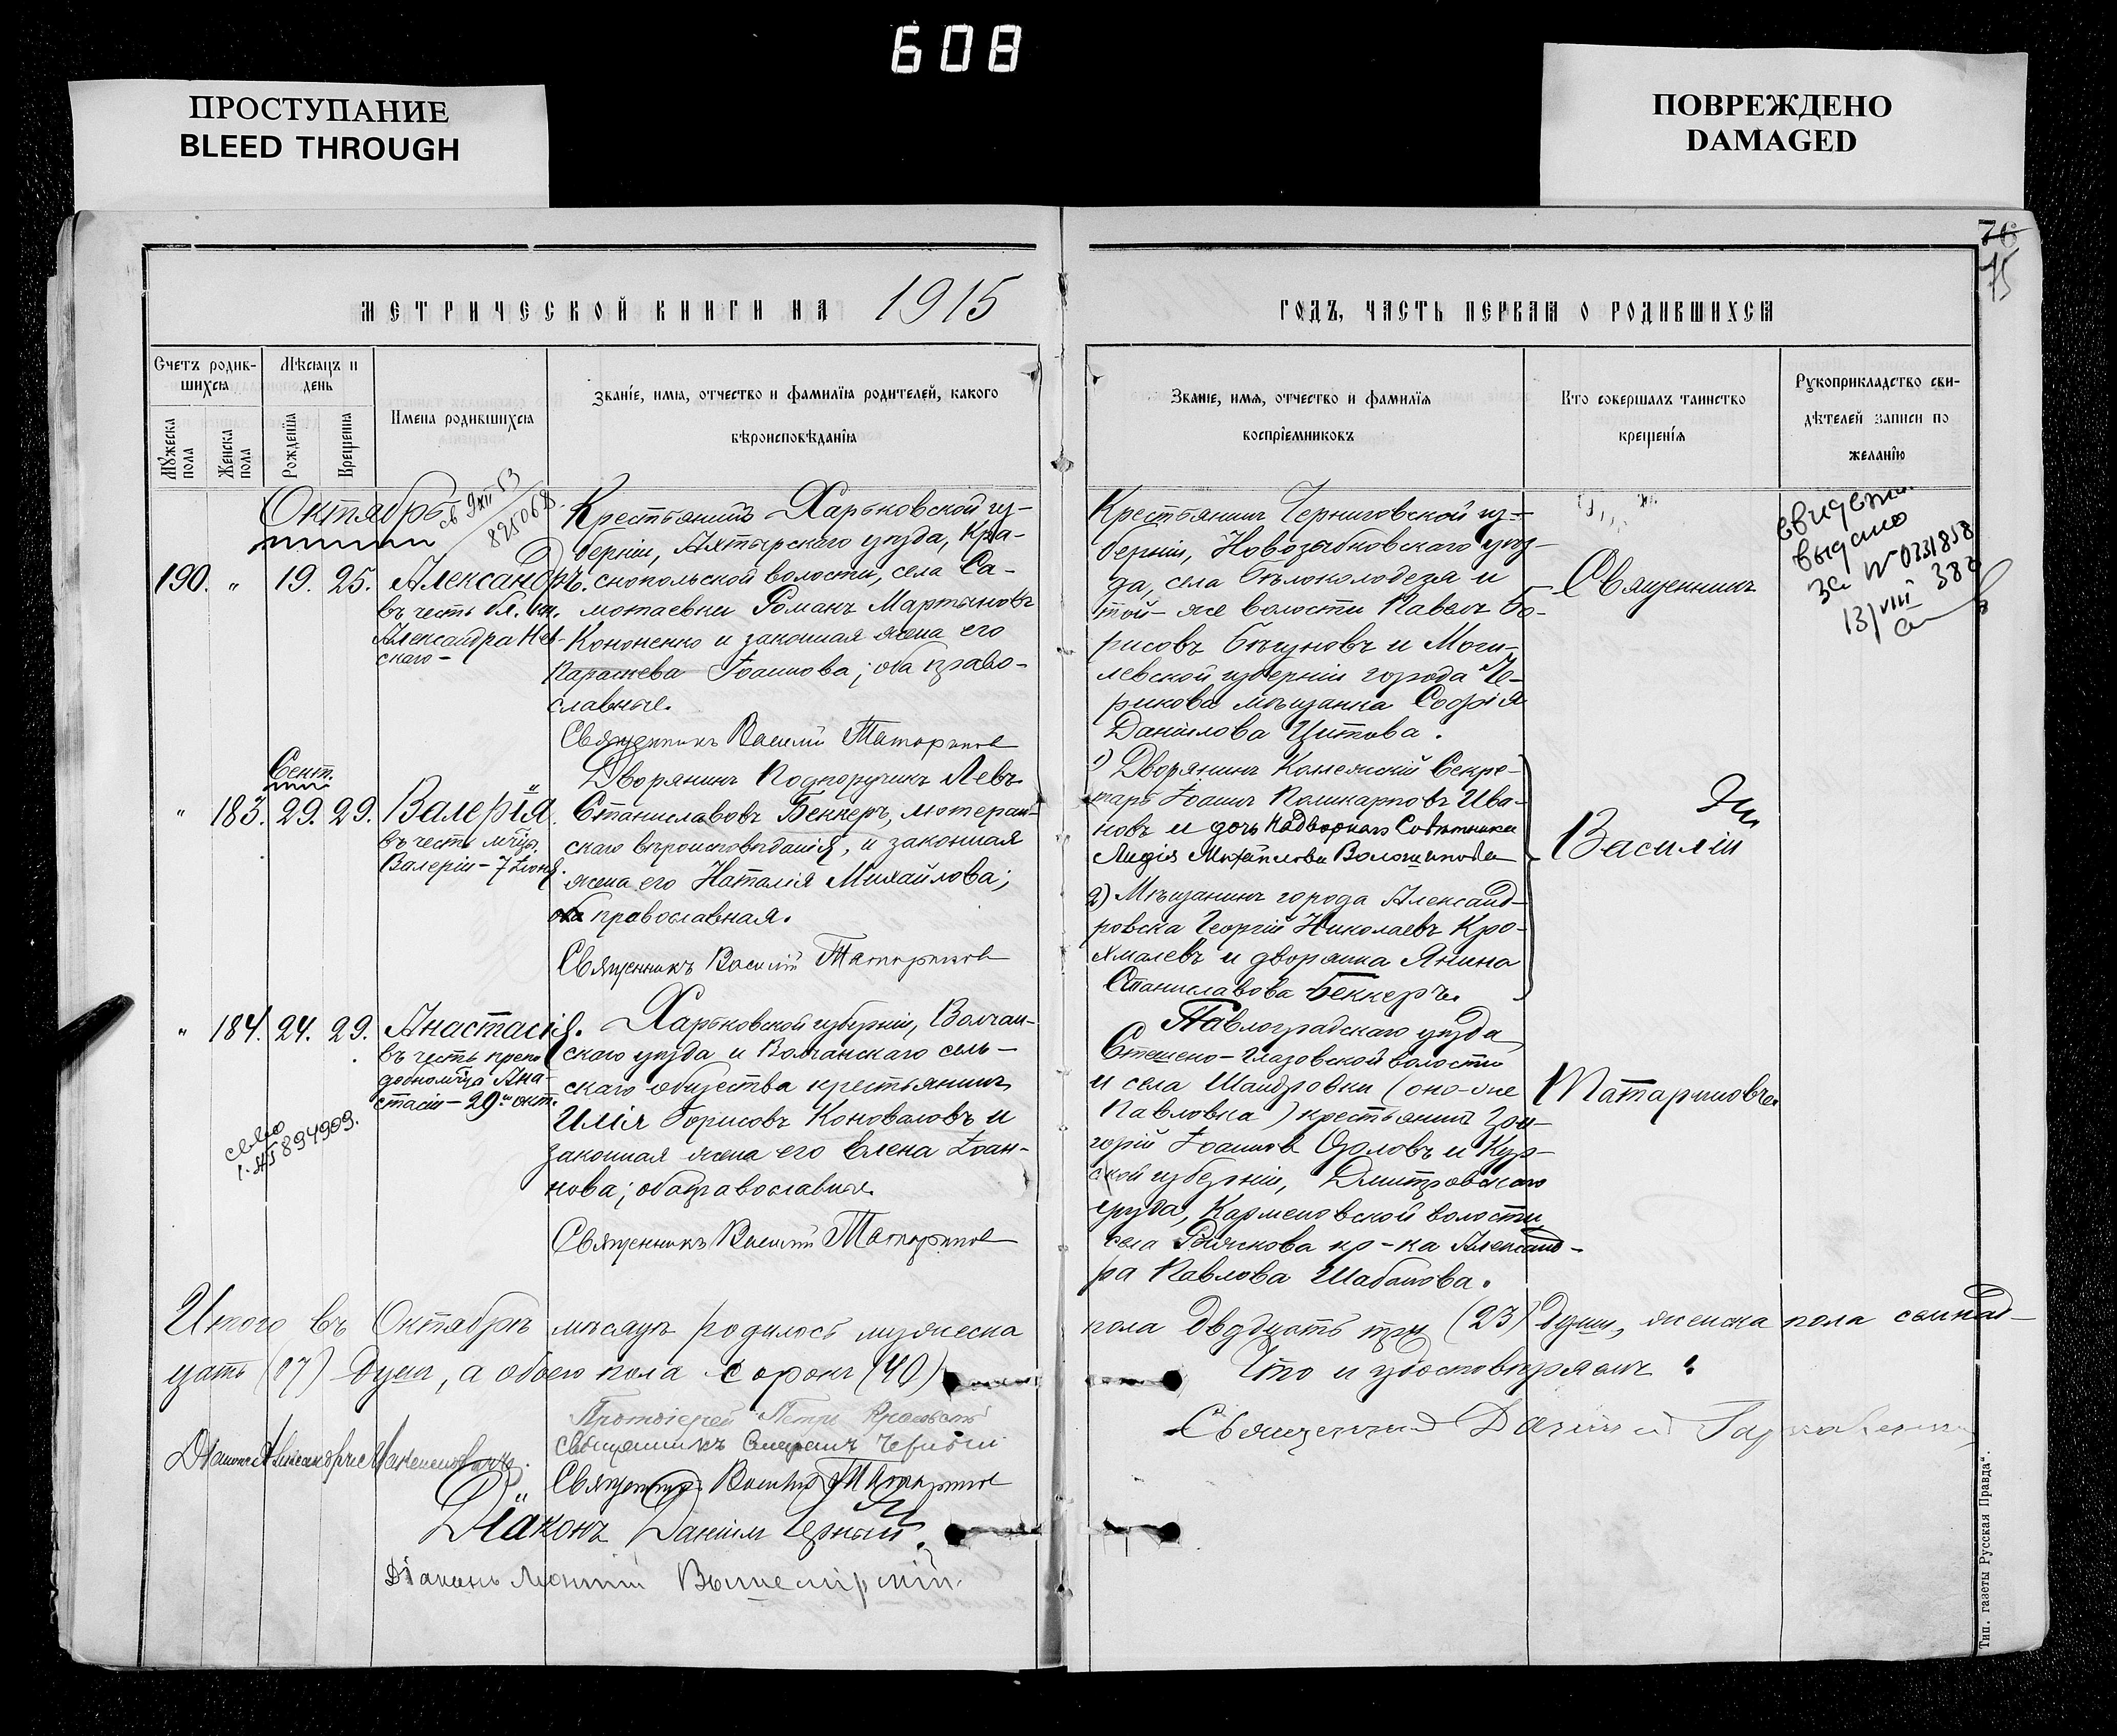 608
ПРОСТУПАНИЕ
BLEED THROUGH
ПОВРЕЖДЕНО
DAMAGED
76
75
МЕТРИЧЕСКОЙ КНИГИ НА 1915
ГОДЪ, ЧАСТЬ ПЕРВАЯ О РОДИВШИХСЯ
Счетъ родив-
шихся
Мѣсяцъ и
день
Мужеска
пола
Женска
пола
Рожденія
Крещенія
Имена родившихся
Званіе, имя, отчество и фамилія родителей, какого
вѣроисповѣданія
Званіе, имя, отчество и фамилія
воспріемниковъ
Кто совершалъ таинство
крещенія
Рукоприкладство сви-
дѣтелей записи по
желанію
Октябрь
825068
190. " 19. 25. Александръ.
въ честь бл. кн.
Александра Нев-
скаго-
Крестьянинъ Харьковской гу-
берніи, Ахтырскаго уѣзда, Кра-
снопольской волости, села Са-
мотаевки Романъ Мартыновъ
Кононенко и законная жена его
Параскева Іоаннова; оба право-
славные.
Священникъ Василій Татариновъ
Крестьянинъ Черниговской гу-
берніи, Новозыбковскаго уѣз-
да, села Бѣлоколодезя и
той-же волости Павелъ Бо-
рисовъ Бѣгуновъ и Моги-
левской губерніи города Че-
рикова мѣщанка Софія
Даніилова Цитова.
Священникъ
выдано
за № 0231858
13/VIII 38г
Сент.
" 183. 29. 29. Валерія.
въ честь мц.
Валеріи - 7 Іюня.
Дворянинъ Подпоручикъ Левъ
Станиславовъ Беккеръ, лютеран-
скаго вѣроисповѣданія, и законная
жена его Наталія Михайлова;
православная.
Священникъ Василій Татариновъ
1) Дворянинъ Коллежскій Секре-
тарь Іоаннъ Поликарповъ Ива-
новъ и дочь Надворнаго Совѣтника
Лидія Михайлова Волошинова
2) Мѣщанинъ города Александ-
ровска Георгій Николаевъ Кро-
хмалевъ и дворянка Янина
Станиславова Беккеръ.
Василій
" 184. 24. 29. Анастасія.
въ честь препо-
добномц. Ана-
стасіи - 29 окт.
894909.
Харьковской губерніи, Волчан-
скаго уѣзда и Волчанскаго сель-
скаго общества крестьянинъ
Илія Борисовъ Коноваловъ и
законная жена его Елена Іоан-
нова; оба православные.
Священникъ Василій Татариновъ
Павлоградскаго уѣзда
волости
и села Шандровки (оно-же
Павловка) крестьянинъ Гри-
горій Іоанновъ Орловъ и Кур-
ской губерніи, Дмитровскаго
уѣзда, волости
села кр-ка Александ-
ра Павлова Шабанова.
Татариновъ.
Итого въ Октябрѣ мѣсяцѣ родилось мужеска
пола двадцать три (23) души, женска пола семнад-
цать (17) душъ, а обоего пола сорокъ (40)
Что и удостовѣряемъ:
Протоіерей Петръ
Священникъ
Священникъ Василій Татариновъ
Діаконъ Даніилъ Черный.
Діаконъ
Священникъ
Тип. газеты „Русская Правда“.